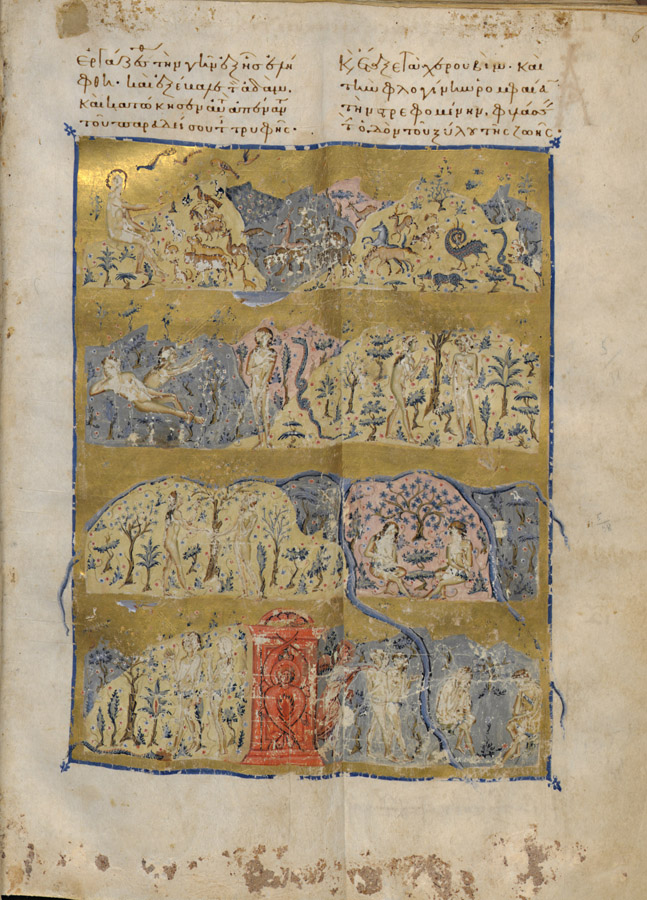 ἐργάζεσθ τὴν γῆν ἐξ ἧς ἐλή
φθη· καὶ ἐξέβαλε τ ἀδάμ·
καὶ κατώκησεν αὐτ ἀπέναν
τοῦ παραδείσου τ τρυφῆς·
Κ ἔταξε τὰ χερουβίμ· καὶ
τὴν φλογίνην ῥομφαία
τὴν στρεφομένην, φυλάσσ
τ ὁδὸν τοῦ ξύλου τῆς ζωῆς·